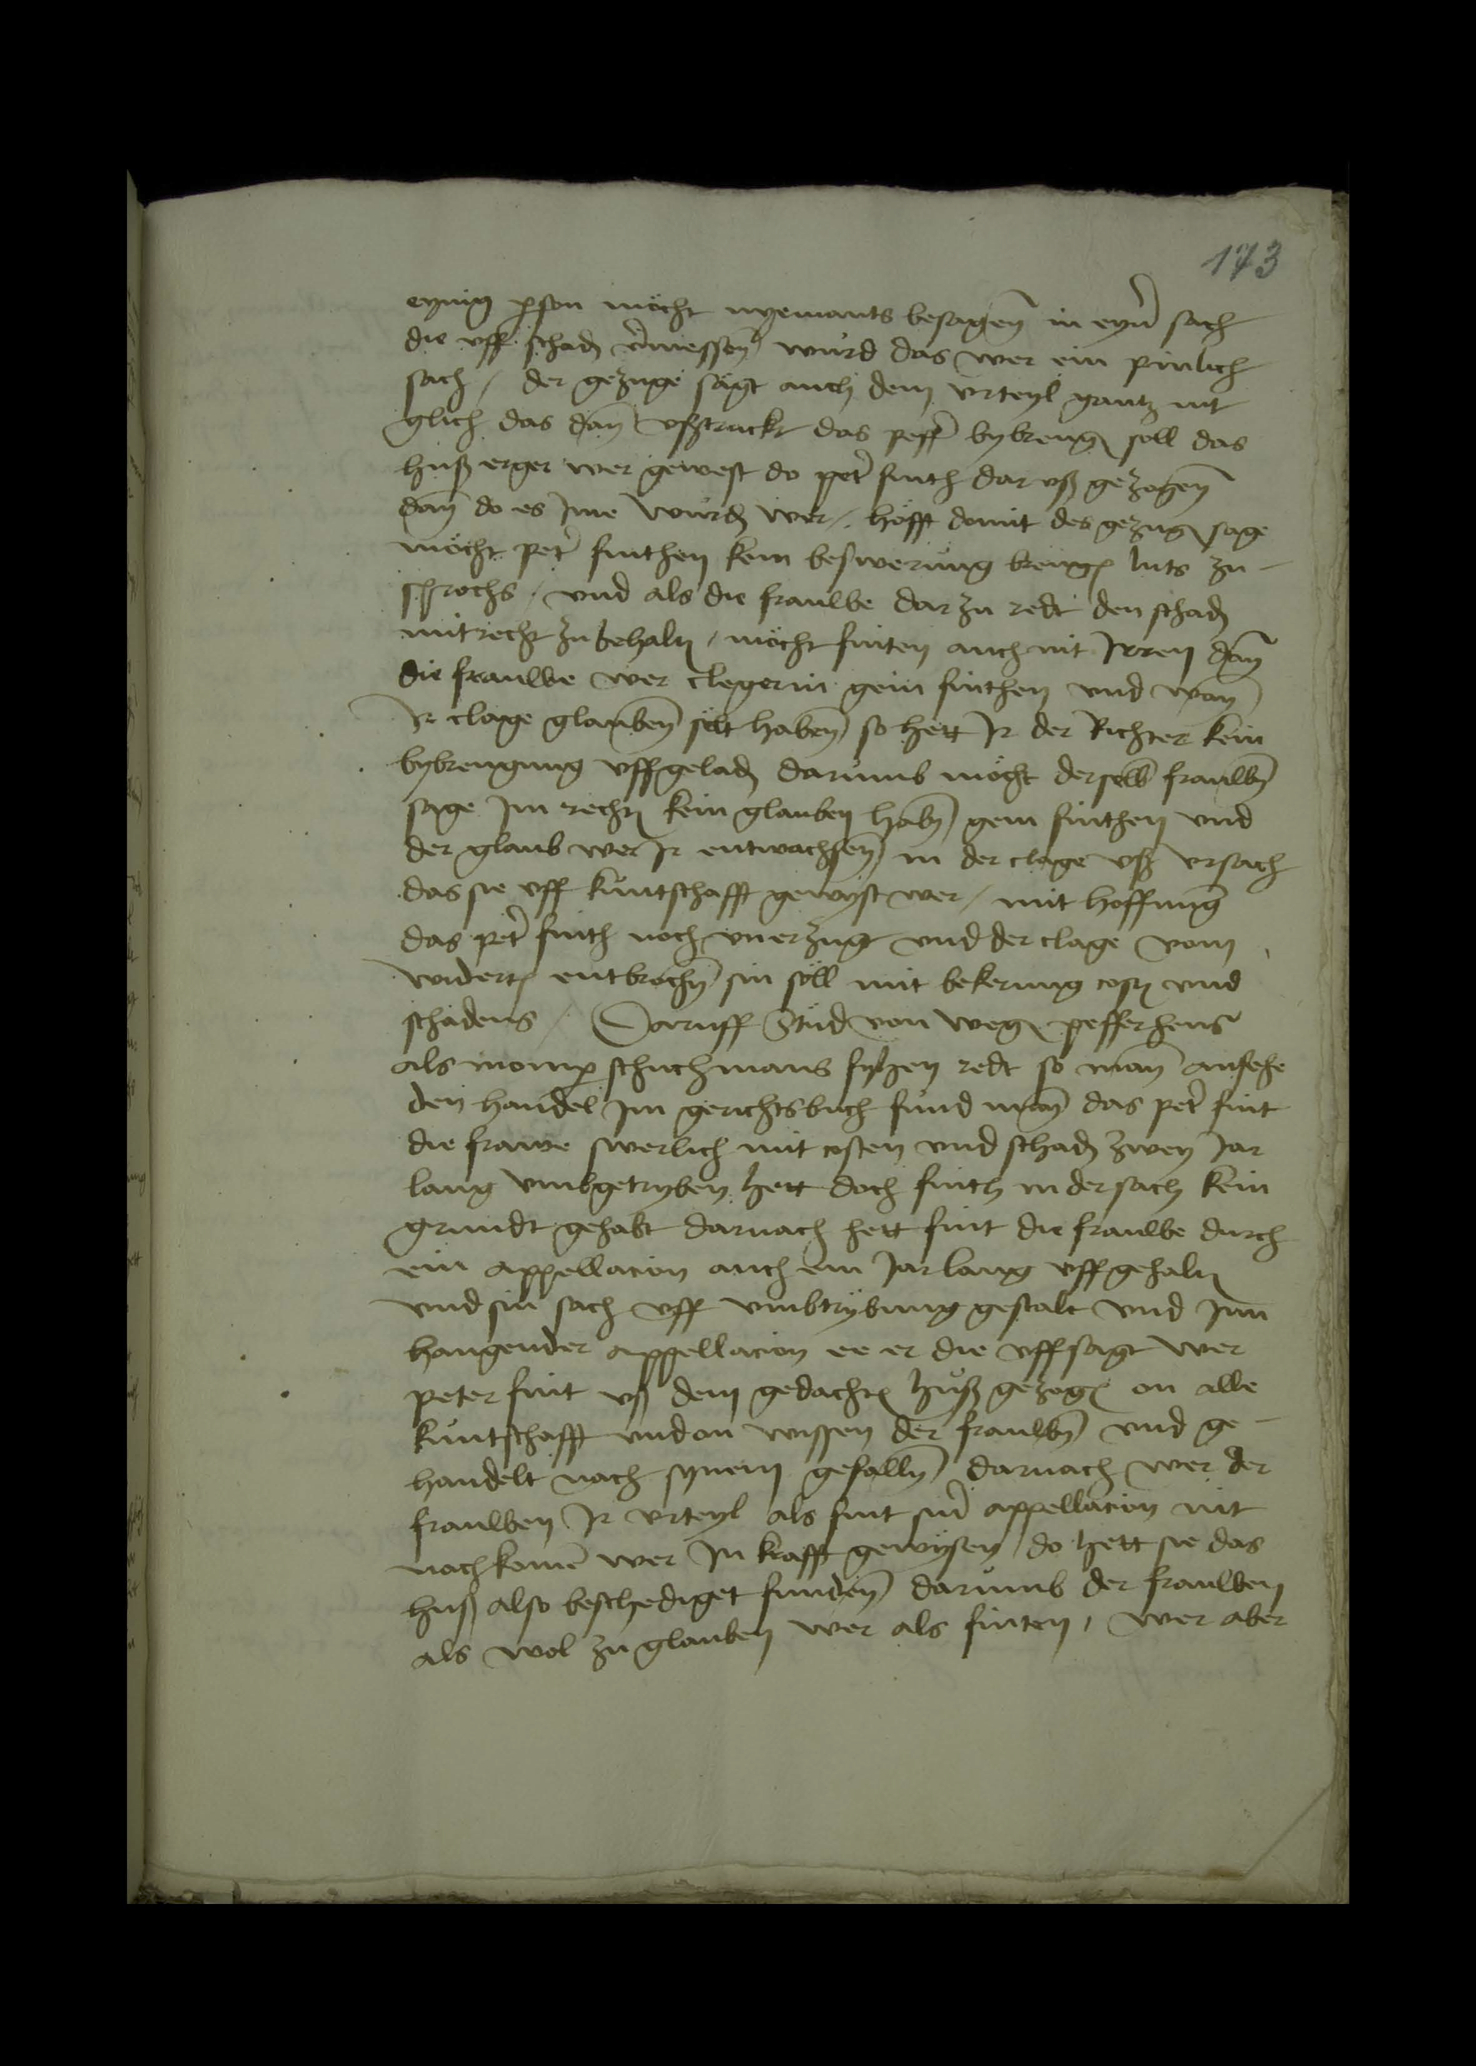 173
eynig person möcht nyemants besagen in eyner sach
die uff schad ermessen würd das wer ein pinlich
sach / der gezüge sagt auch dem urteyl gantz nit
glich das dan ußtruckt das peffer bybreng soll das
huß erger wer gewest do peter finth dar uß gezogen
dan do es Ime würd wer / hofft domit des gezug sage
möcht peter finthen kein beswerung breng luts zu-
sprochs / und als die fraulbe dar zu redt den schad
mit recht zu behalt / möcht finten auch nit Irren dan
die fraulbe wer clegerin gein finthen und wan
Ir clage glauben solt haben so hett Ir der Richter kein
bybrengung uffgelad darumb möcht derselb fraulben
sage Im recht kein glauben haben gein finthen und
der glaub wer Ir entwachsen in der clage uß ursach
das sie uff kuntschafft gewyst wer / mit hoffnung
das peter finth noch unerzugt und der clage vom
widerteil entbrochen sin söll mit bekerung cost und
schadens / Daruff Stud von weg pefferhens
als momper schuchmans fyhen redt so man ansehe
den handel Im gerichtsbuch fund man das peter fint
die frauwe swerlich mit costen und schad zwey Jar
lang umbgetryben hett doch finth in der sach kein
grundt gehabt darnach hett fint die fraulbe durch
ein appellacion auch ein Jar lang uffgehalt
und sin sach uff umbtrybung gestalt und Inn
hangender appellacion ee er die uffsagt wer
peter fint uß dem gedacht huß gezog on alle
kuntschafft und on wissen der fraulben und ge-
handelt nach synem gefallen darnach wer der
fraulben Ir urteyl als fint siner appellacion nit
nachkomen wer In krafft gewysen do hett sie das
huß also beschediget funden darumb der fraulben
als wol zu glauben wer als finten / wer aber